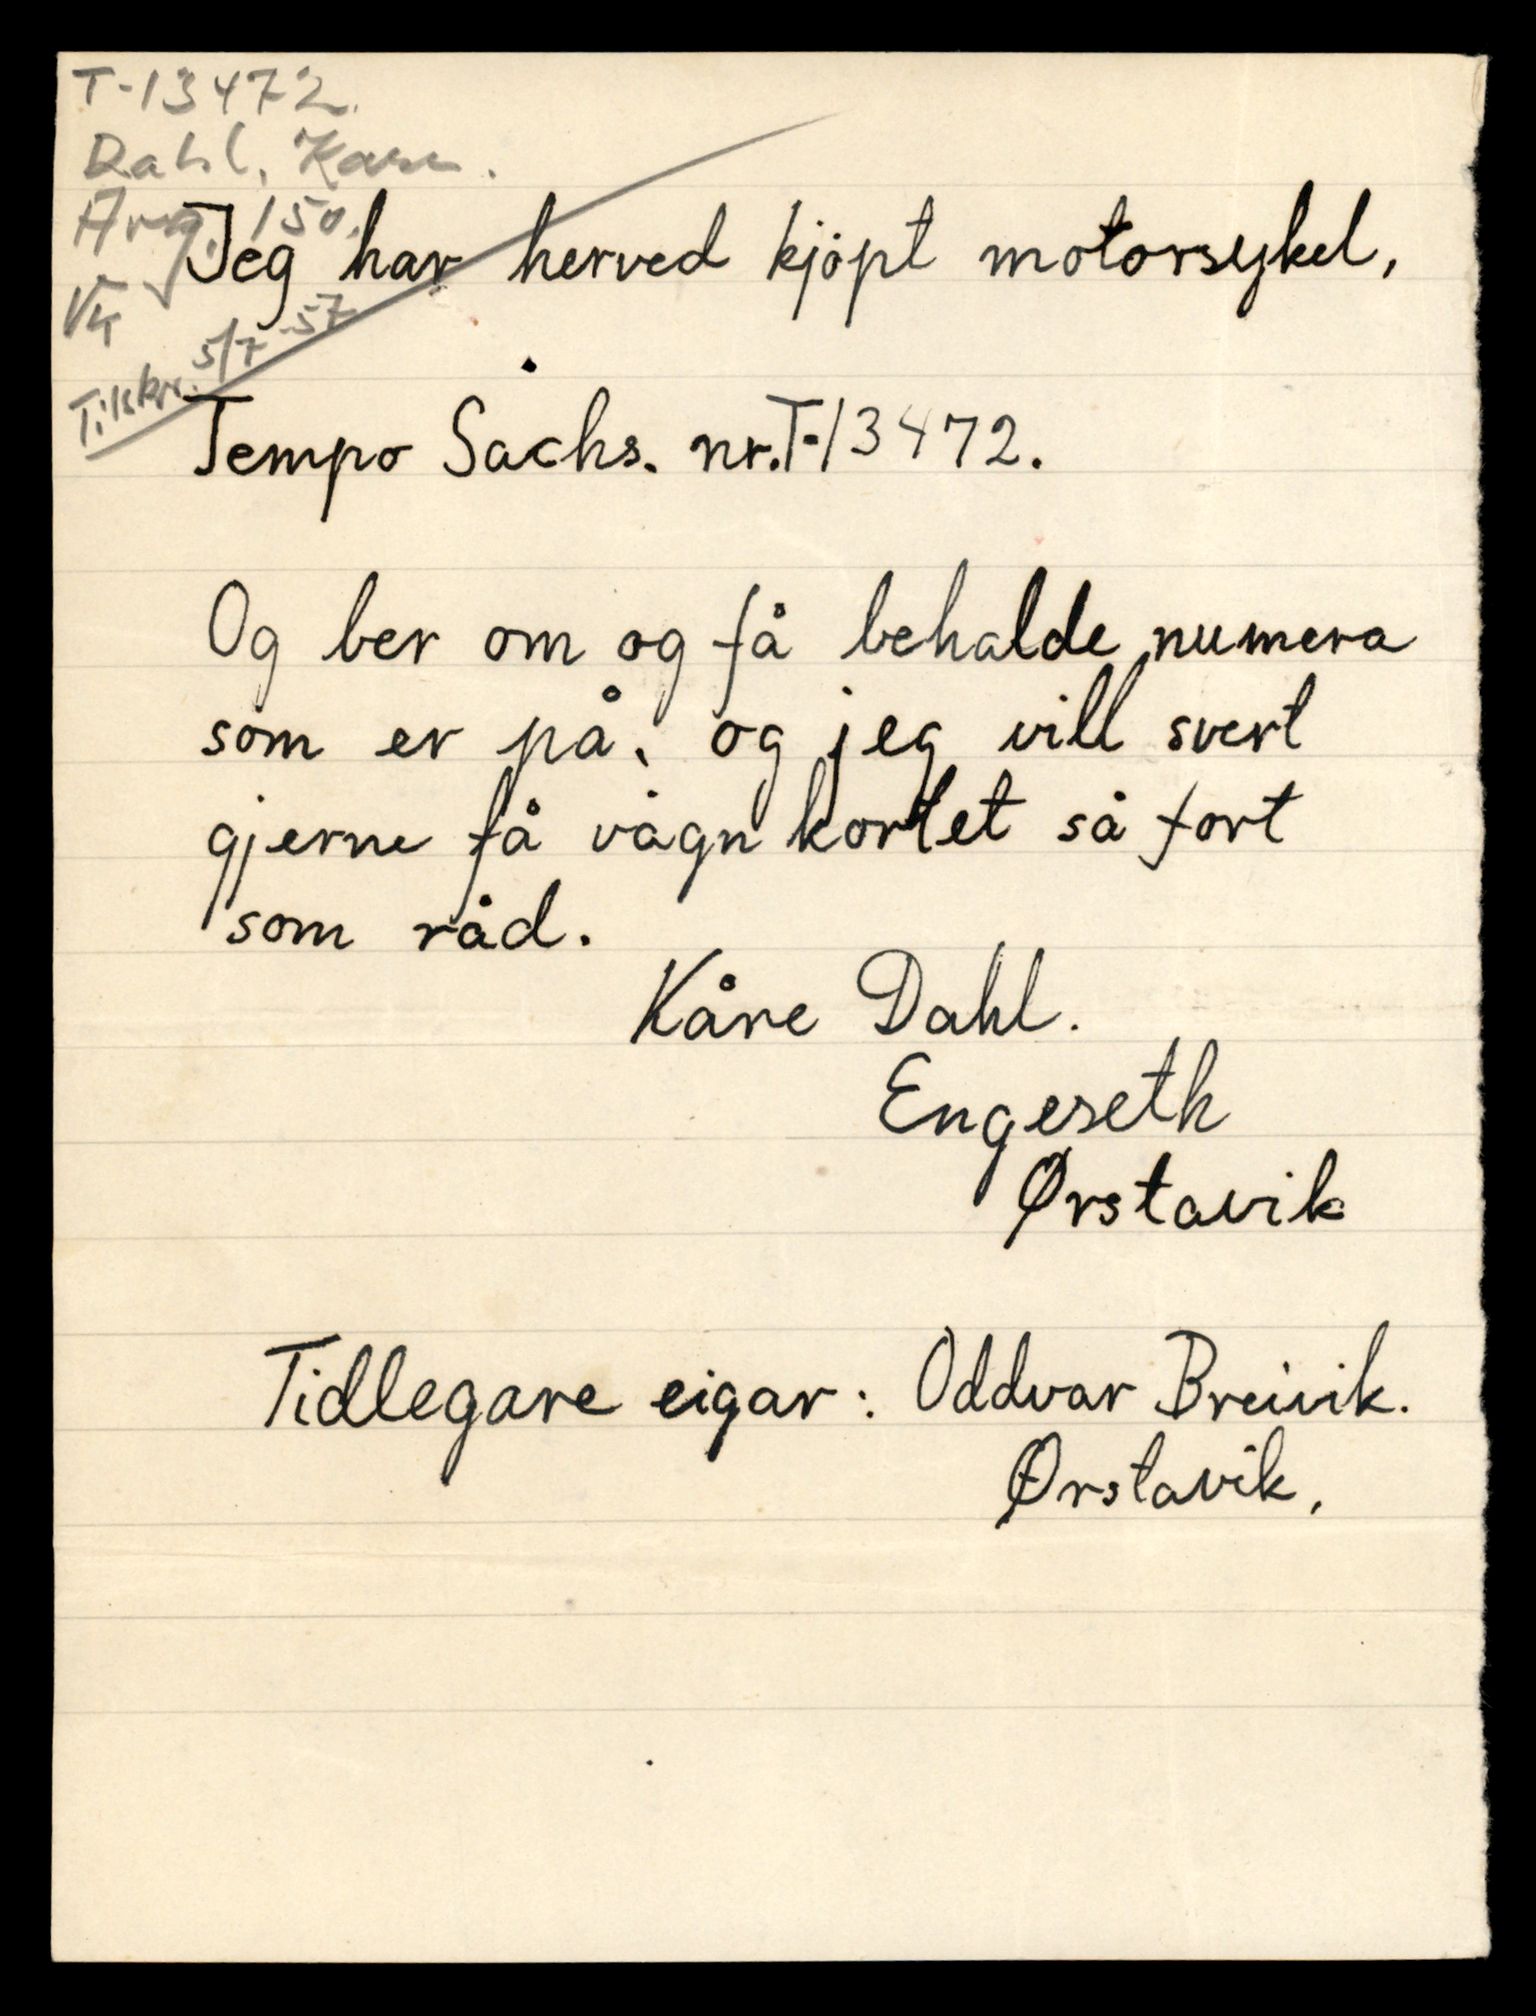 T-13472.
Dahl, Kåre.
Avg. 150.
Tilskr. 5/7-57
Jeg har herved kjöpt motorsykel,
Tempo Sachs. nr. T-13472.
Og ber om og få behalde numera
som er på, og jeg vill svert
gjerne få vågn kortet så fort
som råd.
Kåre Dahl.
Engeseth
Ørstavik
Tidlegare eigar: Oddvar Breivik.
Ørstavik,